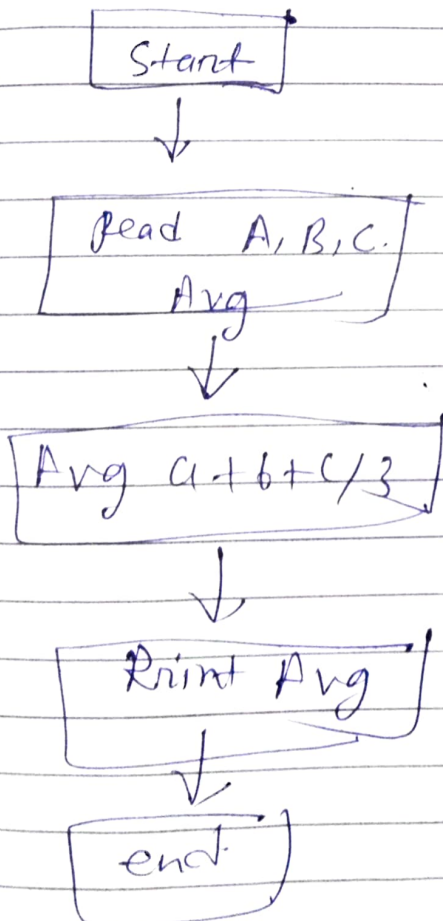 Start
Read A, B, C.
Avg
Avg a+b+c/3
Print Avg
end